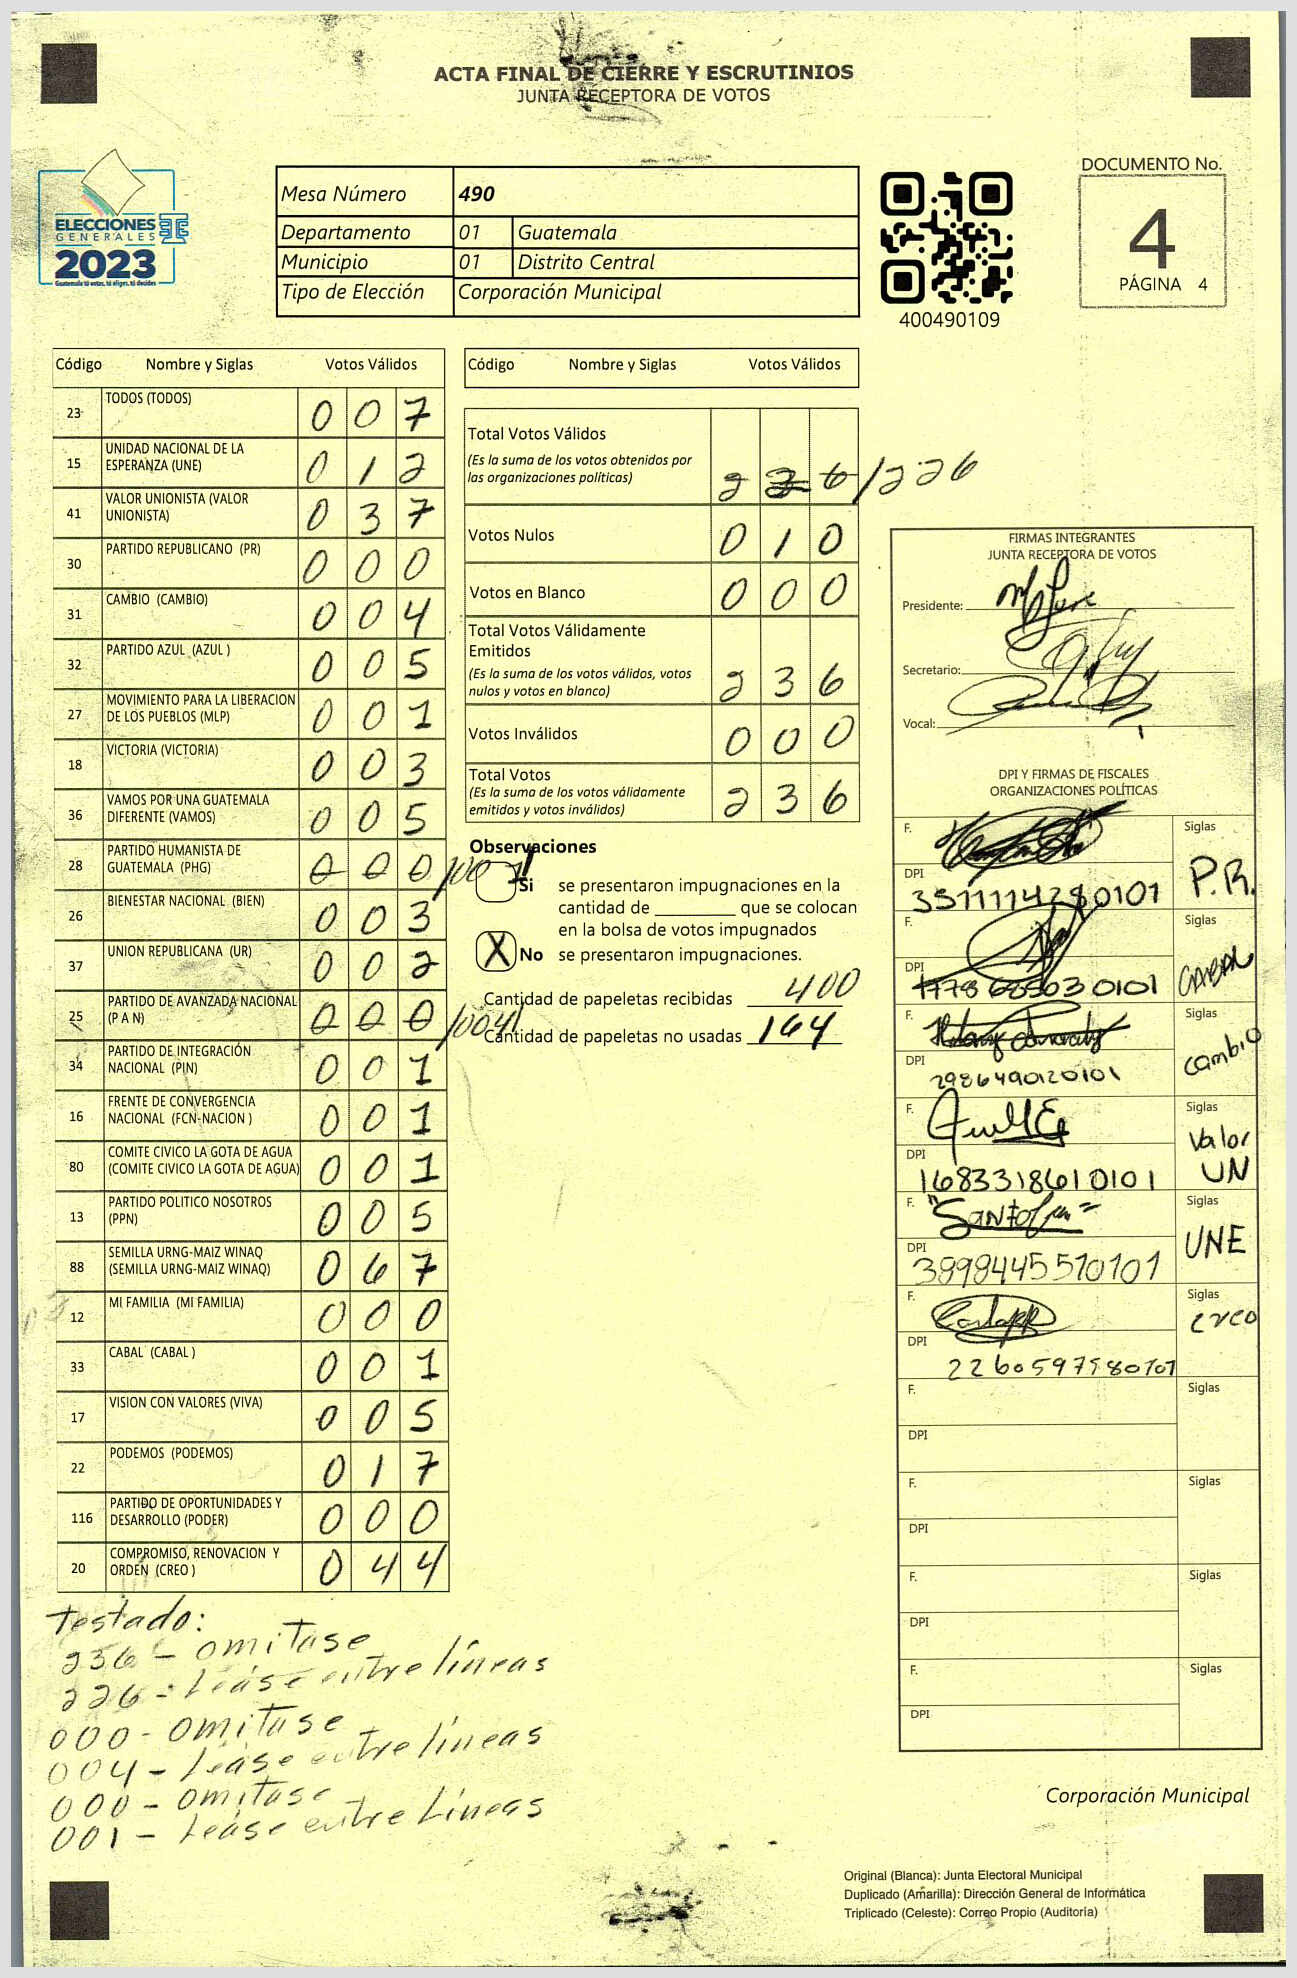 ACTA FINAL DE CIERRE Y ESCRUTINIOS
JUNTA RECEPTORA DE VOTOS
ELECCIONES
GENERALES
2023
Guatemala tú votas, tú eliges, tú decides
Mesa Número 490
Departamento 01 Guatemala
Municipio 01 Distrito Central
Tipo de Elección Corporación Municipal
400490109
DOCUMENTO No.
4
PÁGINA 4
Código Nombre y Siglas Votos Válidos
23 TODOS (TODOS) 0 0 7
15 UNIDAD NACIONAL DE LA ESPERANZA (UNE) 0 1 2
41 VALOR UNIONISTA (VALOR UNIONISTA) 0 3 7
30 PARTIDO REPUBLICANO (PR) 0 0 0
31 CAMBIO (CAMBIO) 0 0 4
32 PARTIDO AZUL (AZUL ) 0 0 5
27 MOVIMIENTO PARA LA LIBERACION DE LOS PUEBLOS (MLP) 0 0 1
18 VICTORIA (VICTORIA) 0 0 3
36 VAMOS POR UNA GUATEMALA DIFERENTE (VAMOS) 0 0 5
28 PARTIDO HUMANISTA DE GUATEMALA (PHG) 0 0 0 /001
26 BIENESTAR NACIONAL (BIEN) 0 0 3
37 UNION REPUBLICANA (UR) 0 0 2
25 PARTIDO DE AVANZADA NACIONAL (P A N) 0 0 0 /004
34 PARTIDO DE INTEGRACIÓN NACIONAL (PIN) 0 0 1
16 FRENTE DE CONVERGENCIA NACIONAL (FCN-NACION ) 0 0 1
80 COMITE CIVICO LA GOTA DE AGUA (COMITE CIVICO LA GOTA DE AGUA) 0 0 1
13 PARTIDO POLITICO NOSOTROS (PPN) 0 0 5
88 SEMILLA URNG-MAIZ WINAQ (SEMILLA URNG-MAIZ WINAQ) 0 6 7
12 MI FAMILIA (MI FAMILIA) 0 0 0
33 CABAL (CABAL ) 0 0 1
17 VISION CON VALORES (VIVA) 0 0 5
22 PODEMOS (PODEMOS) 0 1 7
116 PARTIDO DE OPORTUNIDADES Y DESARROLLO (PODER) 0 0 0
20 COMPROMISO, RENOVACION Y ORDEN (CREO ) 0 4 4
Testado:
236 - omitase
226 - Léase entre líneas
000 - omitase
004 - Léase entre líneas
000 - omitase
001 - Léase entre Líneas
Código Nombre y Siglas Votos Válidos
Total Votos Válidos
(Es la suma de los votos obtenidos por
las organizaciones políticas) 2 3 6 /226
Votos Nulos 0 1 0
Votos en Blanco 0 0 0
Total Votos Válidamente
Emitidos
(Es la suma de los votos válidos, votos
nulos y votos en blanco) 2 3 6
Votos Inválidos 0 0 0
Total Votos
(Es la suma de los votos válidamente
emitidos y votos inválidos) 2 3 6
Observaciones
Si se presentaron impugnaciones en la
cantidad de ________ que se colocan
en la bolsa de votos impugnados
X No se presentaron impugnaciones.
Cantidad de papeletas recibidas 400
Cantidad de papeletas no usadas 164
FIRMAS INTEGRANTES
JUNTA RECEPTORA DE VOTOS
Presidente:
Secretario:
Vocal:
DPI Y FIRMAS DE FISCALES
ORGANIZACIONES POLÍTICAS
F. Siglas
DPI 3511114280101 P.R.
F. Siglas
DPI 0101 CABAL
F. Siglas
DPI 2986490120101 cambio
F. Siglas
DPI 1683318610101 Valor UN
F. Siglas
DPI 3898445570101 UNE
F. Siglas
DPI 2260597580101 creo
F. Siglas
DPI
F. Siglas
DPI
F. Siglas
DPI
F. Siglas
DPI
Corporación Municipal
Original (Blanca): Junta Electoral Municipal
Duplicado (Amarilla): Dirección General de Informática
Triplicado (Celeste): Correo Propio (Auditoría)